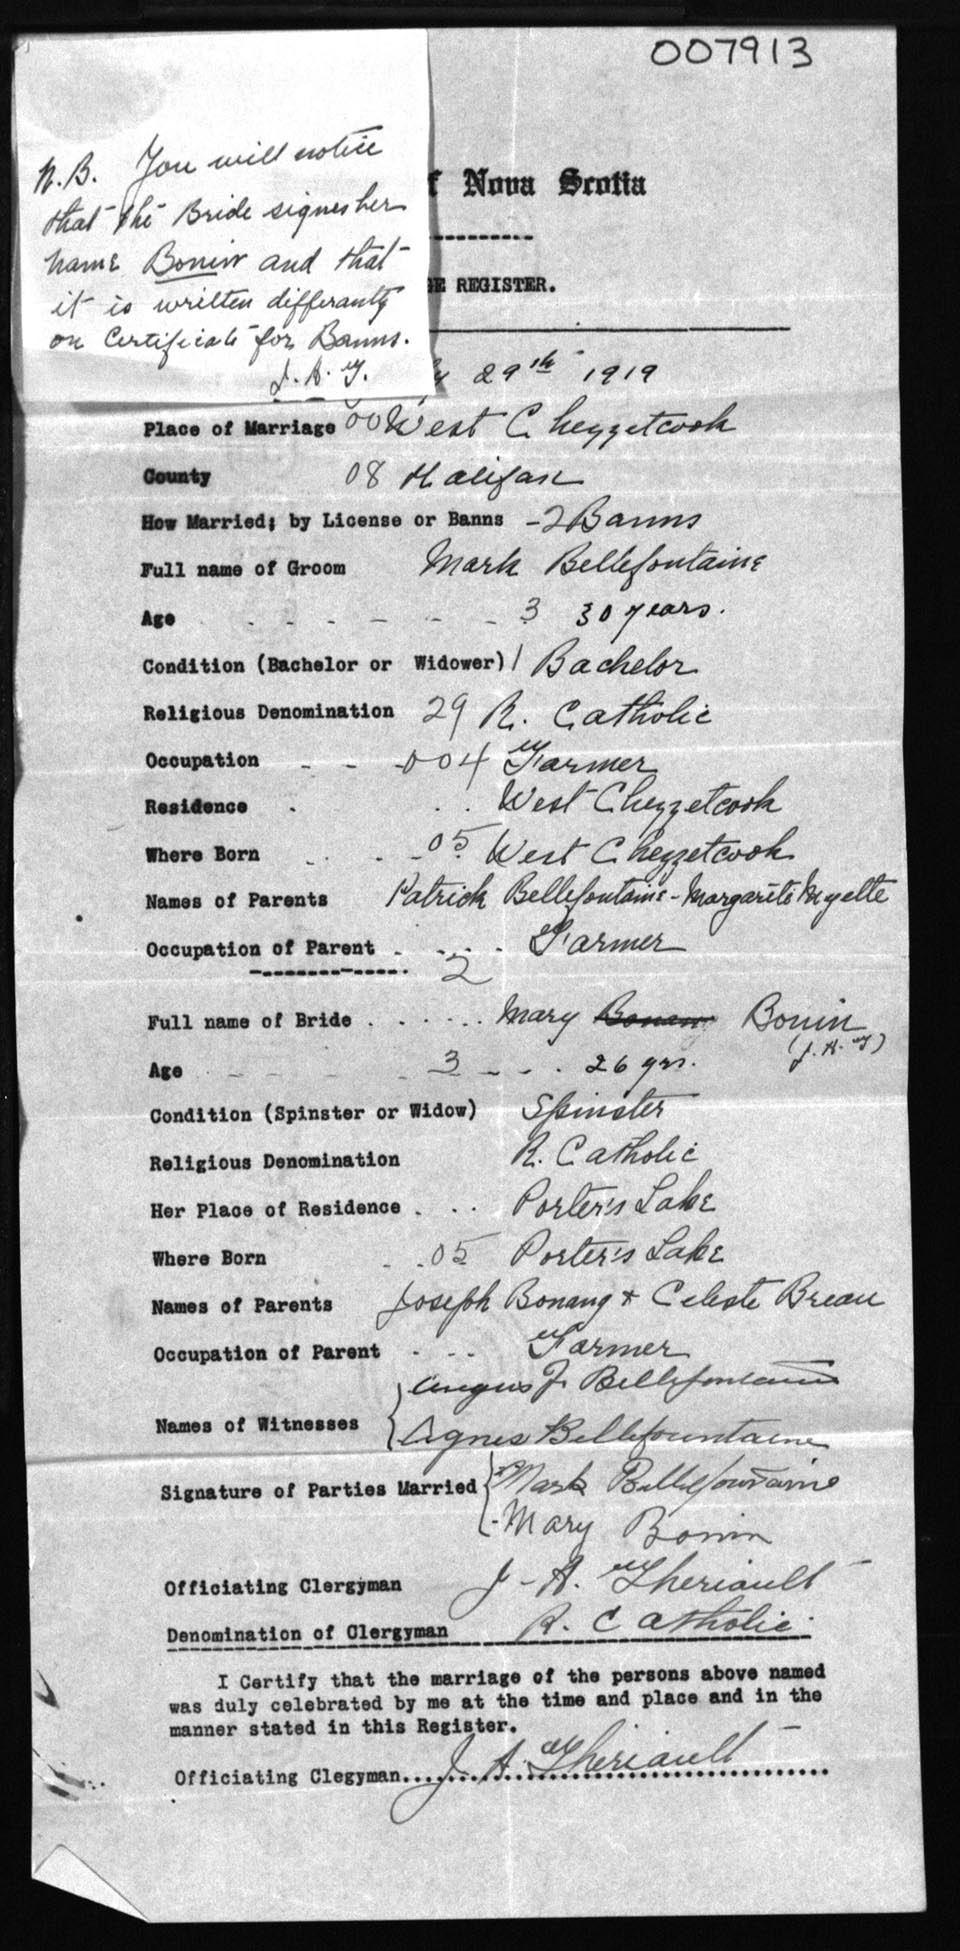 007913
N.B. You will notice
that the Bride signes her
name Bonin and that
it is written differantly
on Certificate for Banns.
J. A. T.
f Nova Scotia
GE REGISTER.
y 29th 1919
Place of Marriage 00 West Chezzetcook
County 08 Halifax
How Married; by License or Banns - 2 Banns
Full name of Groom Mark Bellefontaine
Age - - - - - 3 30 years.
Condition (Bachelor or Widower) 1 Bachelor
Religious Denomination 29 R. Catholic
Occupation - - - 004 Farmer
Residence . . . West Chezzetcook
Where Born . . - - 05 West Chezzetcook
Names of Parents Patrick Bellefontaine - Margarite Myette
Occupation of Parent . . . . Farmer
2
Full name of Bride . . . . . . Mary Bonang Bonin
(J. A. T)
Age - - - - 3 - - . 26 yrs.
Condition (Spinster or Widow) Spinster
Religious Denomination R. Catholic
Her Place of Residence . . . Porter's Lake
Where Born . . 05 Porter's Lake
Names of Parents Joseph Bonang + Celeste Breau
Occupation of Parent . . . Farmer
Angus J. Bellefontaine
Names of Witnesses
Agnes Bellefountaine
Signature of Parties Married Mark Bellefountaine
Mary Bonin
Officiating Clergyman J - A. Theriault
Denomination of Clergyman R. Catholic.
I Certify that the marriage of the persons above named
was duly celebrated by me at the time and place and in the
manner stated in this Register.
Officiating Clegyman.... J. A. Theriault